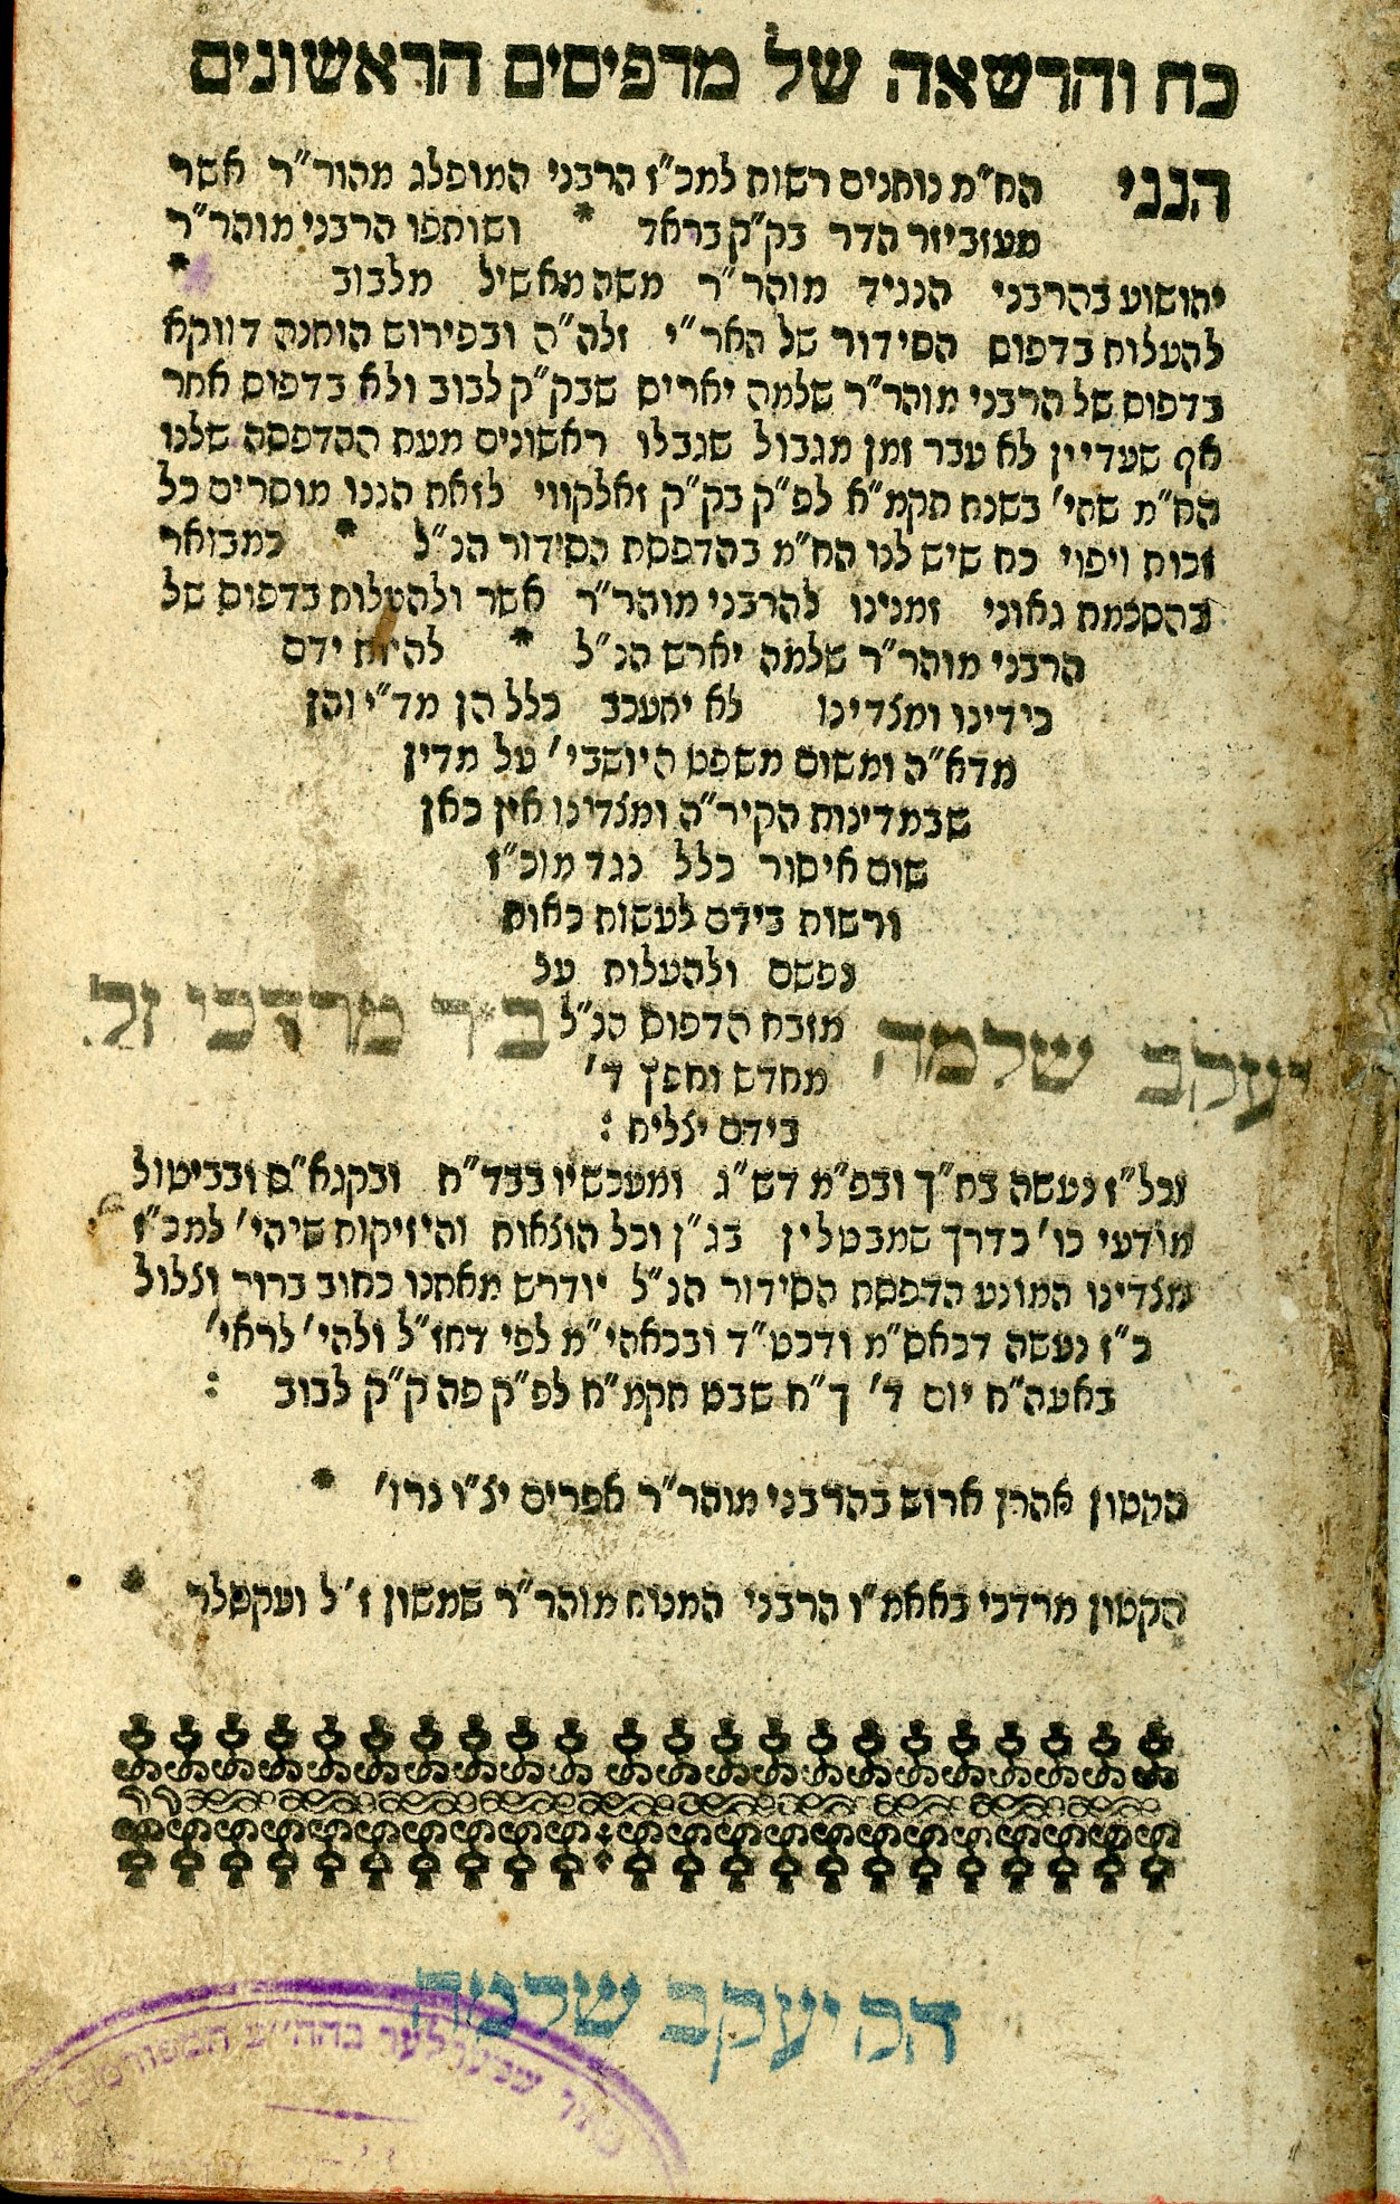 כח והרשאה של מדפיסים הראשונים
הנני הח"מ נותנים רשות למכ"ז הרבני המופלג מהור"ר אשר
מעזביזר הדר בק"ק בראד * ושותפו הרבני מוהר"ר
יהושוע בהרבני הנגיד מוהר"ר משה מאשיל מלבוב *
להעלות בדפוס הסידור של האר"י זלה"ה ובפירוש הותנה דווקא
בדפוס של הרבני מוהר"ר שלמה יארים שבק"ק לבוב ולא בדפוס אחר
אף שעדיין לא עבר זמן מגבול שגבלו ראשונים מעת ההדפסה שלנו
הח"מ שהי' בשנת תקמ"א לפ"ק בק"ק זאלקווי לזאת הננו מוסרים כל
זכות ויפוי כח שיש לנו הח"מ בהדפסת הסידור הנ"ל * כמבואר
בהסכמת גאוני זמנינו להרבני מוהר"ר אשר ולהעלות בדפוס של
הרבני מוהר"ר שלמה יארש הנ"ל * להיות ידם
כידינו ומצדינו לא יתעכב כלל הן מד"י והן
מדא"ה ומשום משפט היושבי' על מדין
שבמדינות הקיר"ה ומצדינו אין כאן
שום איסור כלל נגד מוכ"ז
ורשות בידם לעשות כאות
נפשם ולהעלות על
מזבח הדפוס הנ"ל
מחדש וחפץ ד'
בידם יצליח :
יעקב שלמה ב"ר מרדכי זל.
וכל"ז נעשה בח"ך ובפ"מ דש"ג ומעכשיו בבד"ח ובקגא"ס ובביטול
מודעי כו' כדרך שמבטלין בג"ן וכל הוצאות והיזיקות שיהי' למכ"ז
מצדינו המונע הדפסת הסידור הנ"ל יודרש מאתנו כחוב ברור וצלול
כ"ז נעשה דכאס"מ ודכט"ד ובכאהי"מ לפי דחז"ל ולהי' לראי'
באעה"ח יום ד' ך"ח שבט תקמ"ח לפ"ק פה ק"ק לבוב :
הקטון אהרן ארוש בהרבני מוהר"ר אפרים יצ"ו נרו' *
הקטון מרדכי באאמ"ו הרבני המנוח מוהר"ר שמשון ז'ל ועקסלר *
הק יעקב שלמה